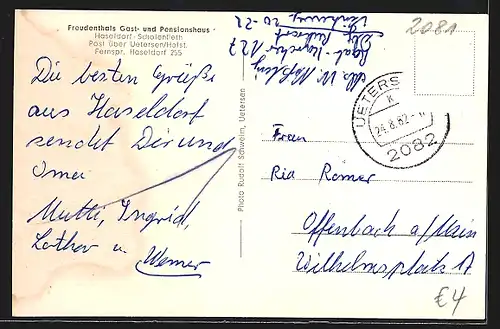 Freudenthals Gast- und Pensionshaus
Haseldorf - Scholenfleth
Post über Uetersen/Holst.
Fernspr. Haseldorf 255
Die besten Grüße
aus Haseldorf
sendet Dir und
Oma
Mutti, Ingrid,
Lothar u. Werner
Photo Rudolf Schwelm, Uetersen
127
20-22
2081
UETERS
24.8.62
2082
Frau
Ria Römer
Offenbach a/Main
Wilhelmsplatz 17
€4